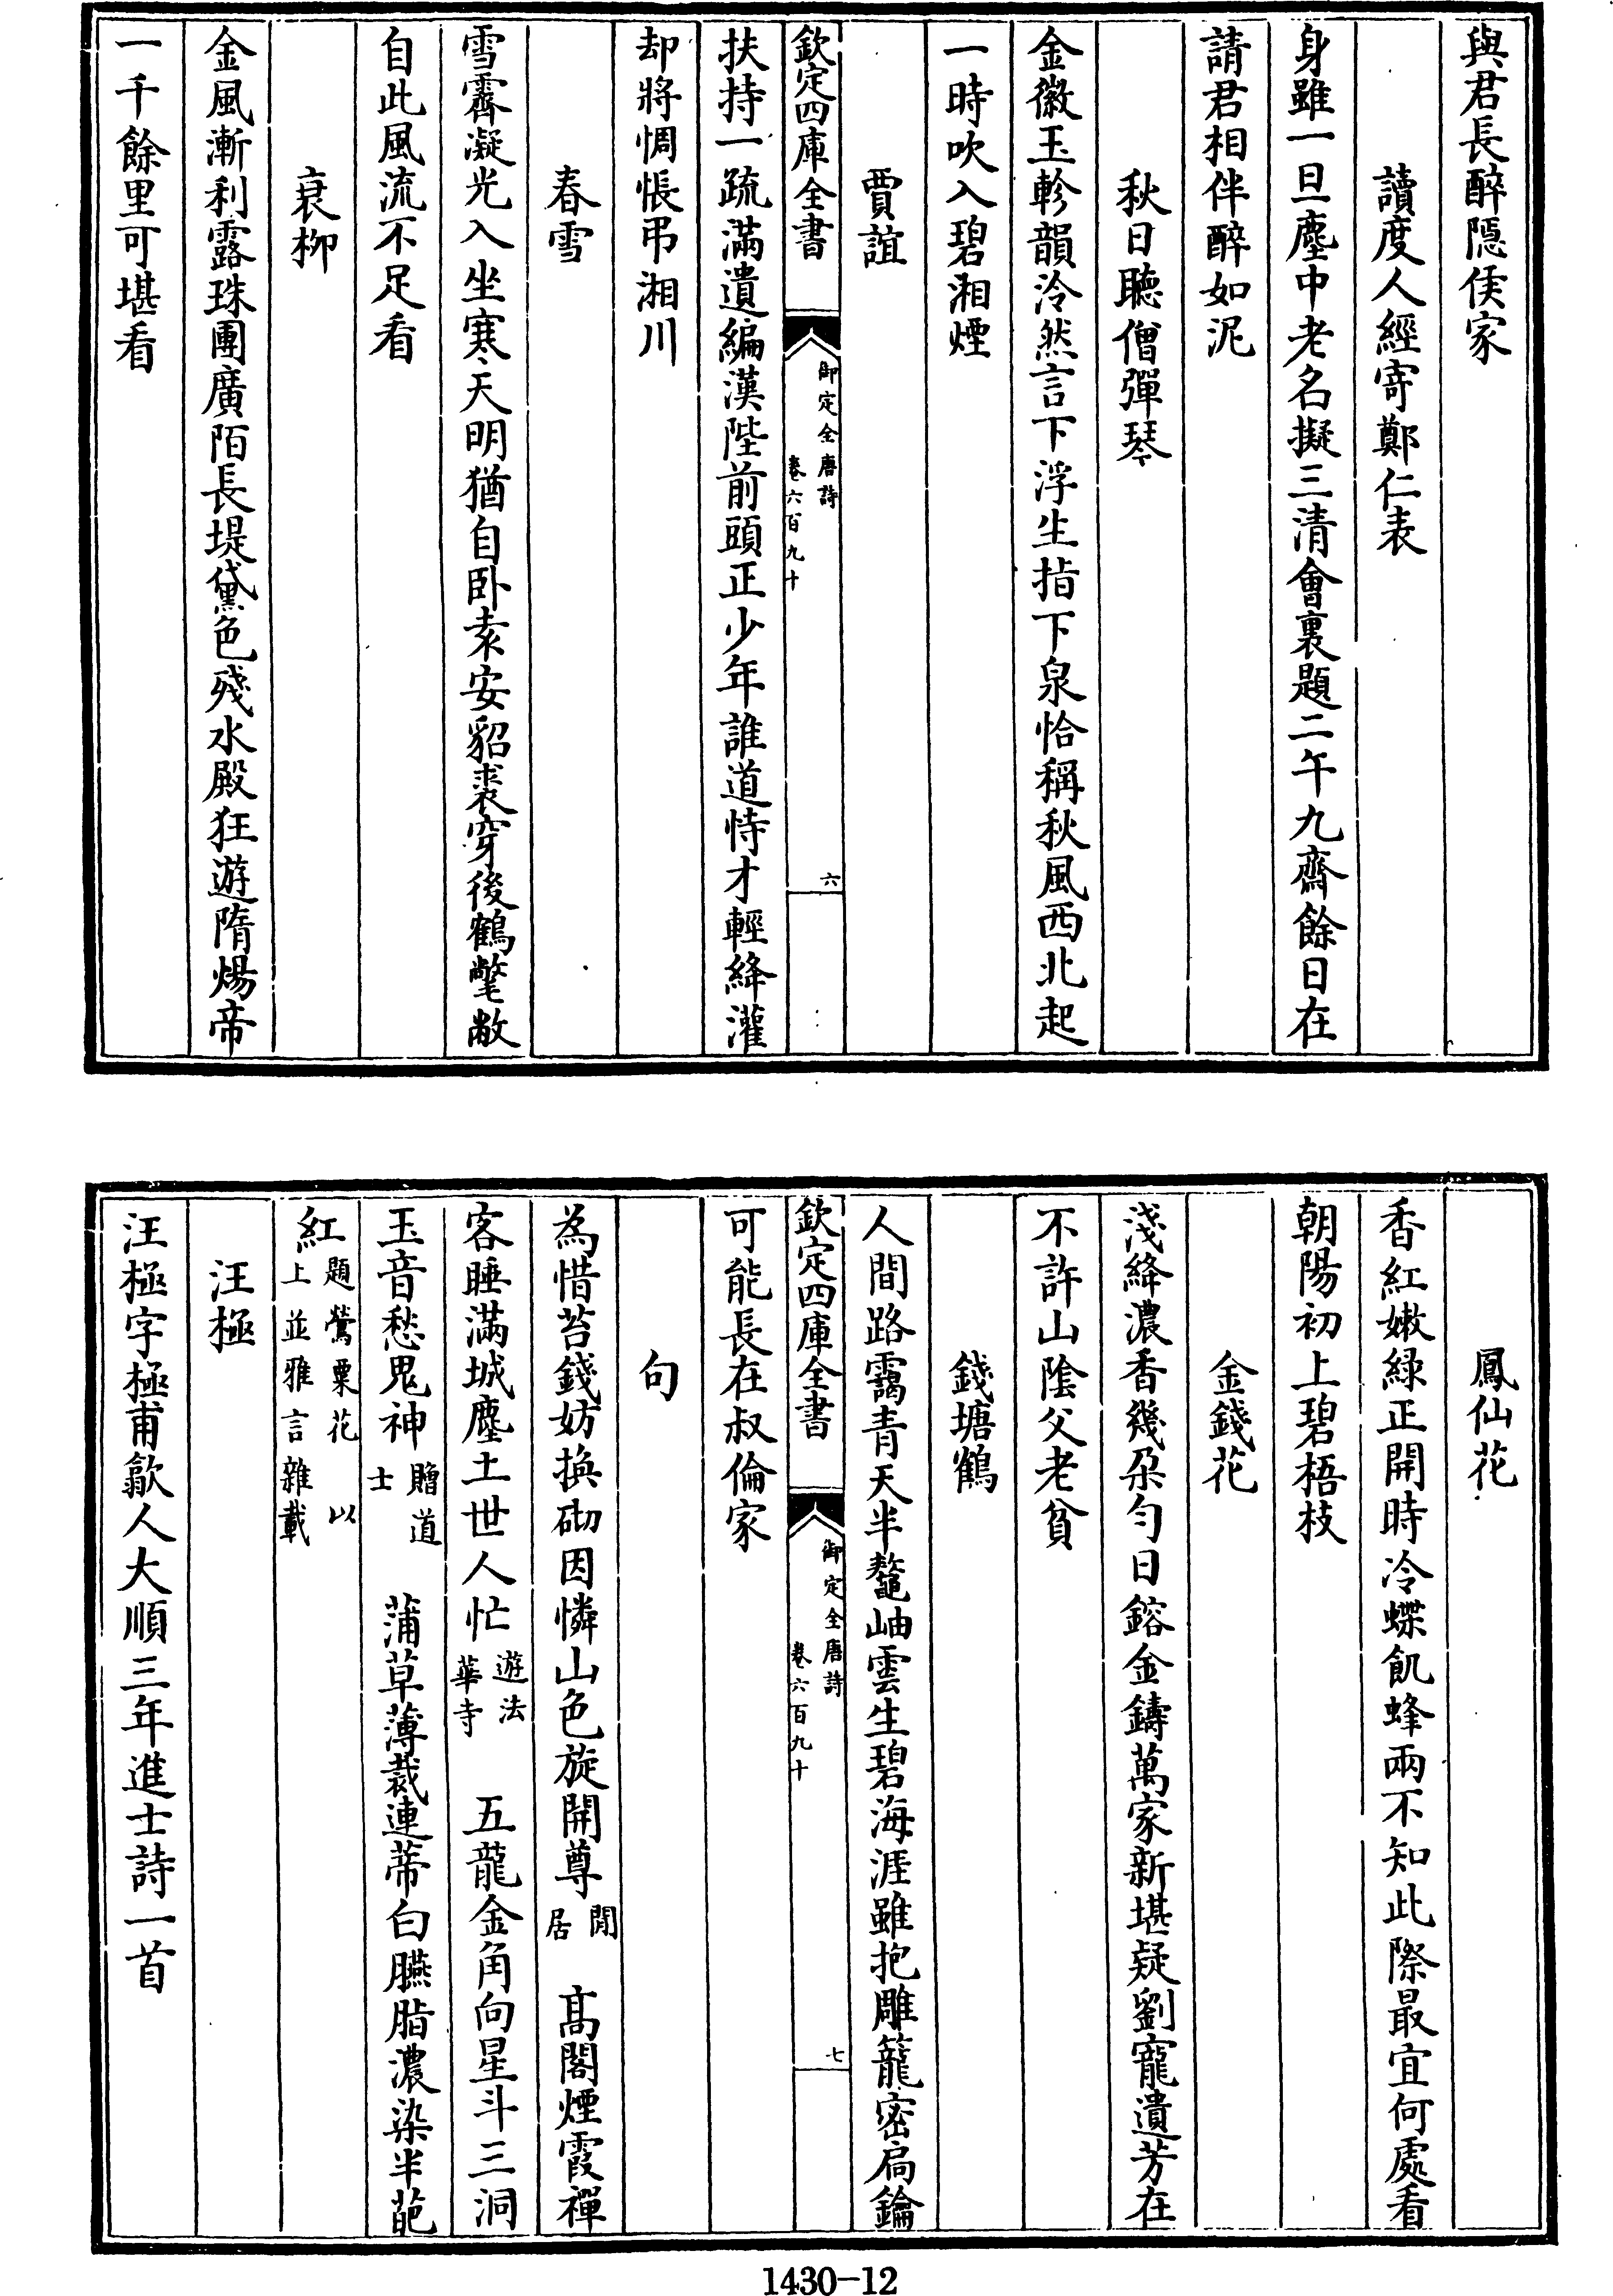 與君長醉隱侯家
讀度人經寄鄭仁表
身雖一旦塵中老名擬三清會裏題二午九齋餘日在
請君相伴醉如泥
秋日聽僧彈琴
金徽玉軫韻泠然言下浮生指下泉恰稱秋風西北起
一時吹入碧湘煙
賈誼
欽定四庫全書
御定全唐詩
卷六百九十
六
扶持一疏滿遺編漢陛前頭正少年誰道恃才輕絳灌
却將惆悵弔湘川
春雪
雪霽凝光入坐寒天明猶自卧袁安貂裘穿後鶴氅敝
自此風流不足看
衰柳
金風漸利露珠團廣陌長堤黛色殘水殿狂遊隋煬帝
一千餘里可堪看
鳳仙花
香紅嫩緑正開時冷蝶飢蜂兩不知此際最宜何處看
朝陽初上碧梧枝
金錢花
淺絳濃香幾朶勻日鎔金鑄萬家新堪疑劉寵遺芳在
不許山隂父老貧
錢塘鶴
人間路靄青天半鼇岫雲生碧海涯雖抱雕籠密扃鑰
欽定四庫全書
御定全唐詩
卷六百九十
七
可能長在叔倫家
句
為惜苔錢妨換砌因憐山色旋開尊閒居 髙閣煙霞禪
客睡滿城塵土世人忙遊法華寺 五龍金角向星斗三洞
玉音愁鬼神贈道士 蒲草薄裁連蒂白臙脂濃染半葩
紅題鶯粟花 以上並雅言雜載
汪極
汪極字極甫歙人大順三年進士詩一首
1430-12